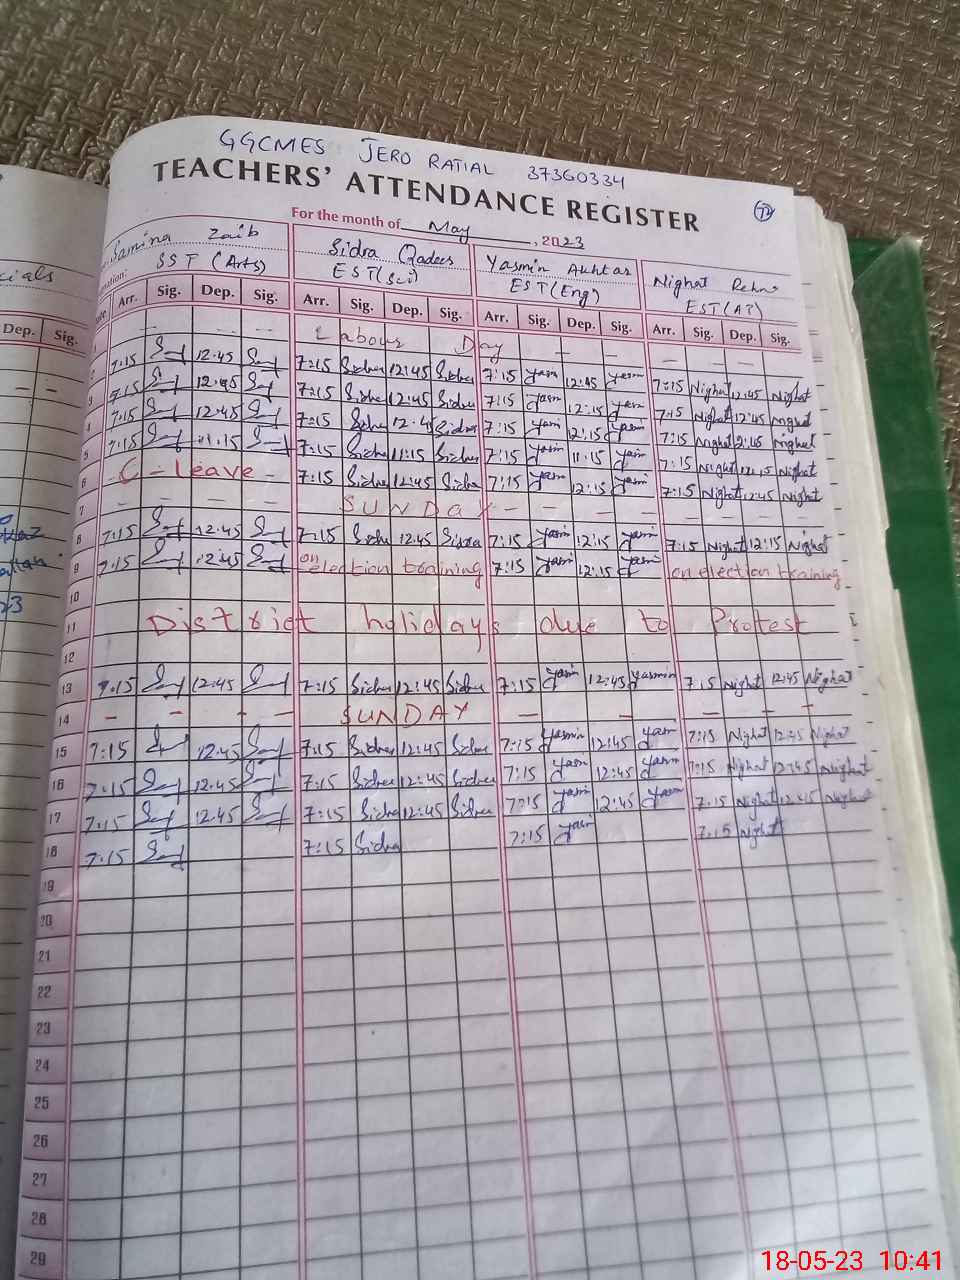 GGCMES JERO RATIAL 37360334
TEACHERS' ATTENDANCE REGISTER
72
For the month of May, 2023
Samina Zaib Sidra Qadees Yasmin Akhtar Nighat Rehna
SST (Arts) EST(Sci) EST(Eng) EST(AT)
Dep. Sig. Arr. Sig. Dep. Sig. Arr. Sig. Dep. Sig. Arr. Sig. Dep. Sig. Arr. Sig. Dep. Sig.
1 — — — Labour Day — — — — — —
2 7:15 12.45 7:15 Sidra 12:45 Sidra 7:15 Yasm 12:45 Yasm 7:15 Nighat 12:45 Nighat
3 7:15 12.45 7:15 Sidra 12:45 Sidra 7:15 Yasm 12:15 Yasm 7:15 Nighat 12:45 Nighat
4 7:15 12.45 7:15 Sidra 12:4 Sidra 7:15 Yasm 12:15 Yasm 7:15 Nighat 12:45 Nighat
5 7:15 11.15 7:15 Sidra 11:15 Sidra 7:15 Yasm 11:15 Yasm 7:15 Nighat 12:15 Nighat
6 C-leave 7:15 Sidra 12:45 Sidra 7:15 Yasm 12:15 Yasm 7:15 Nighat 12:45 Nighat
7 — — — — SUNDAY — — — — — — — —
8 7:15 12.45 7:15 Sidra 12:45 Sidra 7:15 Yasm 12:15 Yasm 7:15 Nighat 12:15 Nighat
9 7:15 12:45 on election training 7:15 Yasm 12:15 Yasm on election training
10
11 District holidays due to Protest
12
13 7:15 12:45 7:15 Sidra 12:45 Sidra 7:15 Yasm 12:45 Yasmin 7:15 Nighat 12:45 Nighat
14 — — — — SUNDAY — — — — —
15 7:15 12.45 7:15 Sidra 12:45 Sidra 7:15 Yasmin 12:45 Yasm 7:15 Nighat 12:45 Nighat
16 7:15 12.45 7:15 Sidra 12:45 Sidra 7:15 Yasm 12:45 Yasm 7:15 Nighat 12:45 Nighat
17 7:15 12.45 7:15 Sidra 12:45 Sidra 7:15 Yasm 12:45 Yasm 7:15 Nighat 12:45 Nighat
18 7:15 7:15 Sidra 7:15 Yasm 7:15 Nighat
19
20
21
22
23
24
25
26
27
28
29
18-05-23 10:41